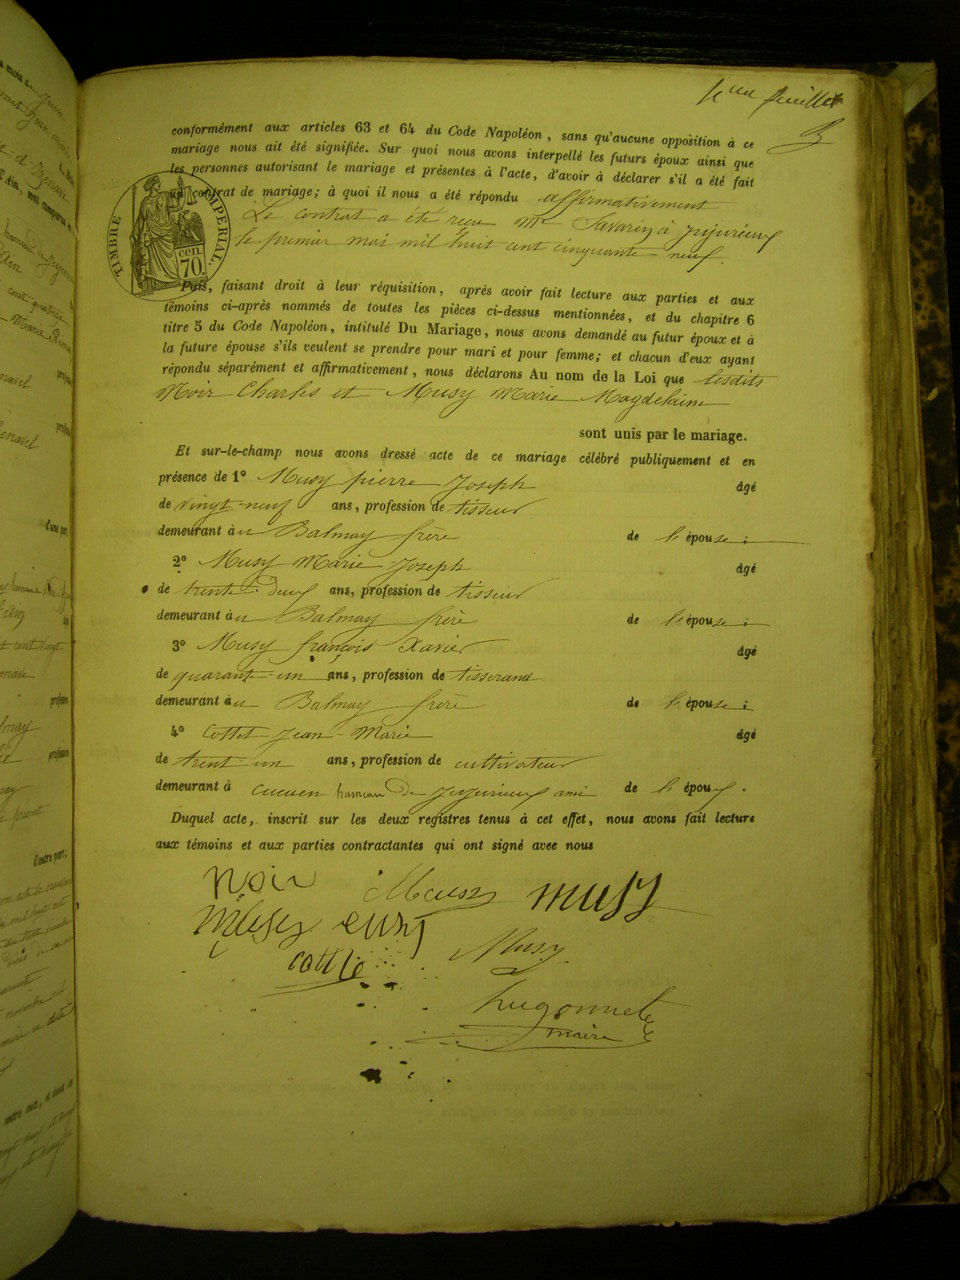 4eme feuillet
conformément aux articles 63 et 64 du Code Napoléon, sans qu'aucune opposition à ce
mariage nous ait été signifiée. Sur quoi nous avons interpellé les futurs époux ainsi que
les personnes autorisant le mariage et présentes à l'acte, d'avoir à déclarer s'il a été fait
un contrat de mariage; à quoi il nous a été répondu affirmativement
Le contrat a été reçu Me Savarin à Jujurieux
le premier mai mil huit cent cinquante neuf.
TIMBRE IMPERIAL.
cen.
70.
Puis, faisant droit à leur réquisition, après avoir fait lecture aux parties et aux
témoins ci-après nommés de toutes les pièces ci-dessus mentionnées, et du chapitre 6
titre 5 du Code Napoléon, intitulé Du Mariage, nous avons demandé au futur époux et à
la future épouse s'ils veulent se prendre pour mari et pour femme; et chacun d'eux ayant
répondu séparément et affirmativement, nous déclarons Au nom de la Loi que lesdits
Noir Charles et Musy Marie Magdelaine
sont unis par le mariage.
Et sur-le-champ nous avons dressé acte de ce mariage célébré publiquement et en
présence de 1° Musy pierre Joseph âgé
de vingt-neuf ans, profession de tisseur
demeurant à u Balmay frère de l'épouse;
2° Musy Marie Joseph âgé
de trente-deux ans, profession de tisseur
demeurant à u Balmay frère de l'épouse;
3° Musy françois Xavier âgé
de quarant-un ans, profession de tisserand
demeurant à u Balmay frère de l'épouse;
4° Cottet Jean-Marie âgé
de trent-un ans, profession de cultivateur
demeurant à cucuen hameau de Jujurieux ami de l'époux.
Duquel acte, inscrit sur les deux registres tenus à cet effet, nous avons fait lecture
aux témoins et aux parties contractantes qui ont signé avec nous
noir Musy musy
Musy
hugonnet
maire